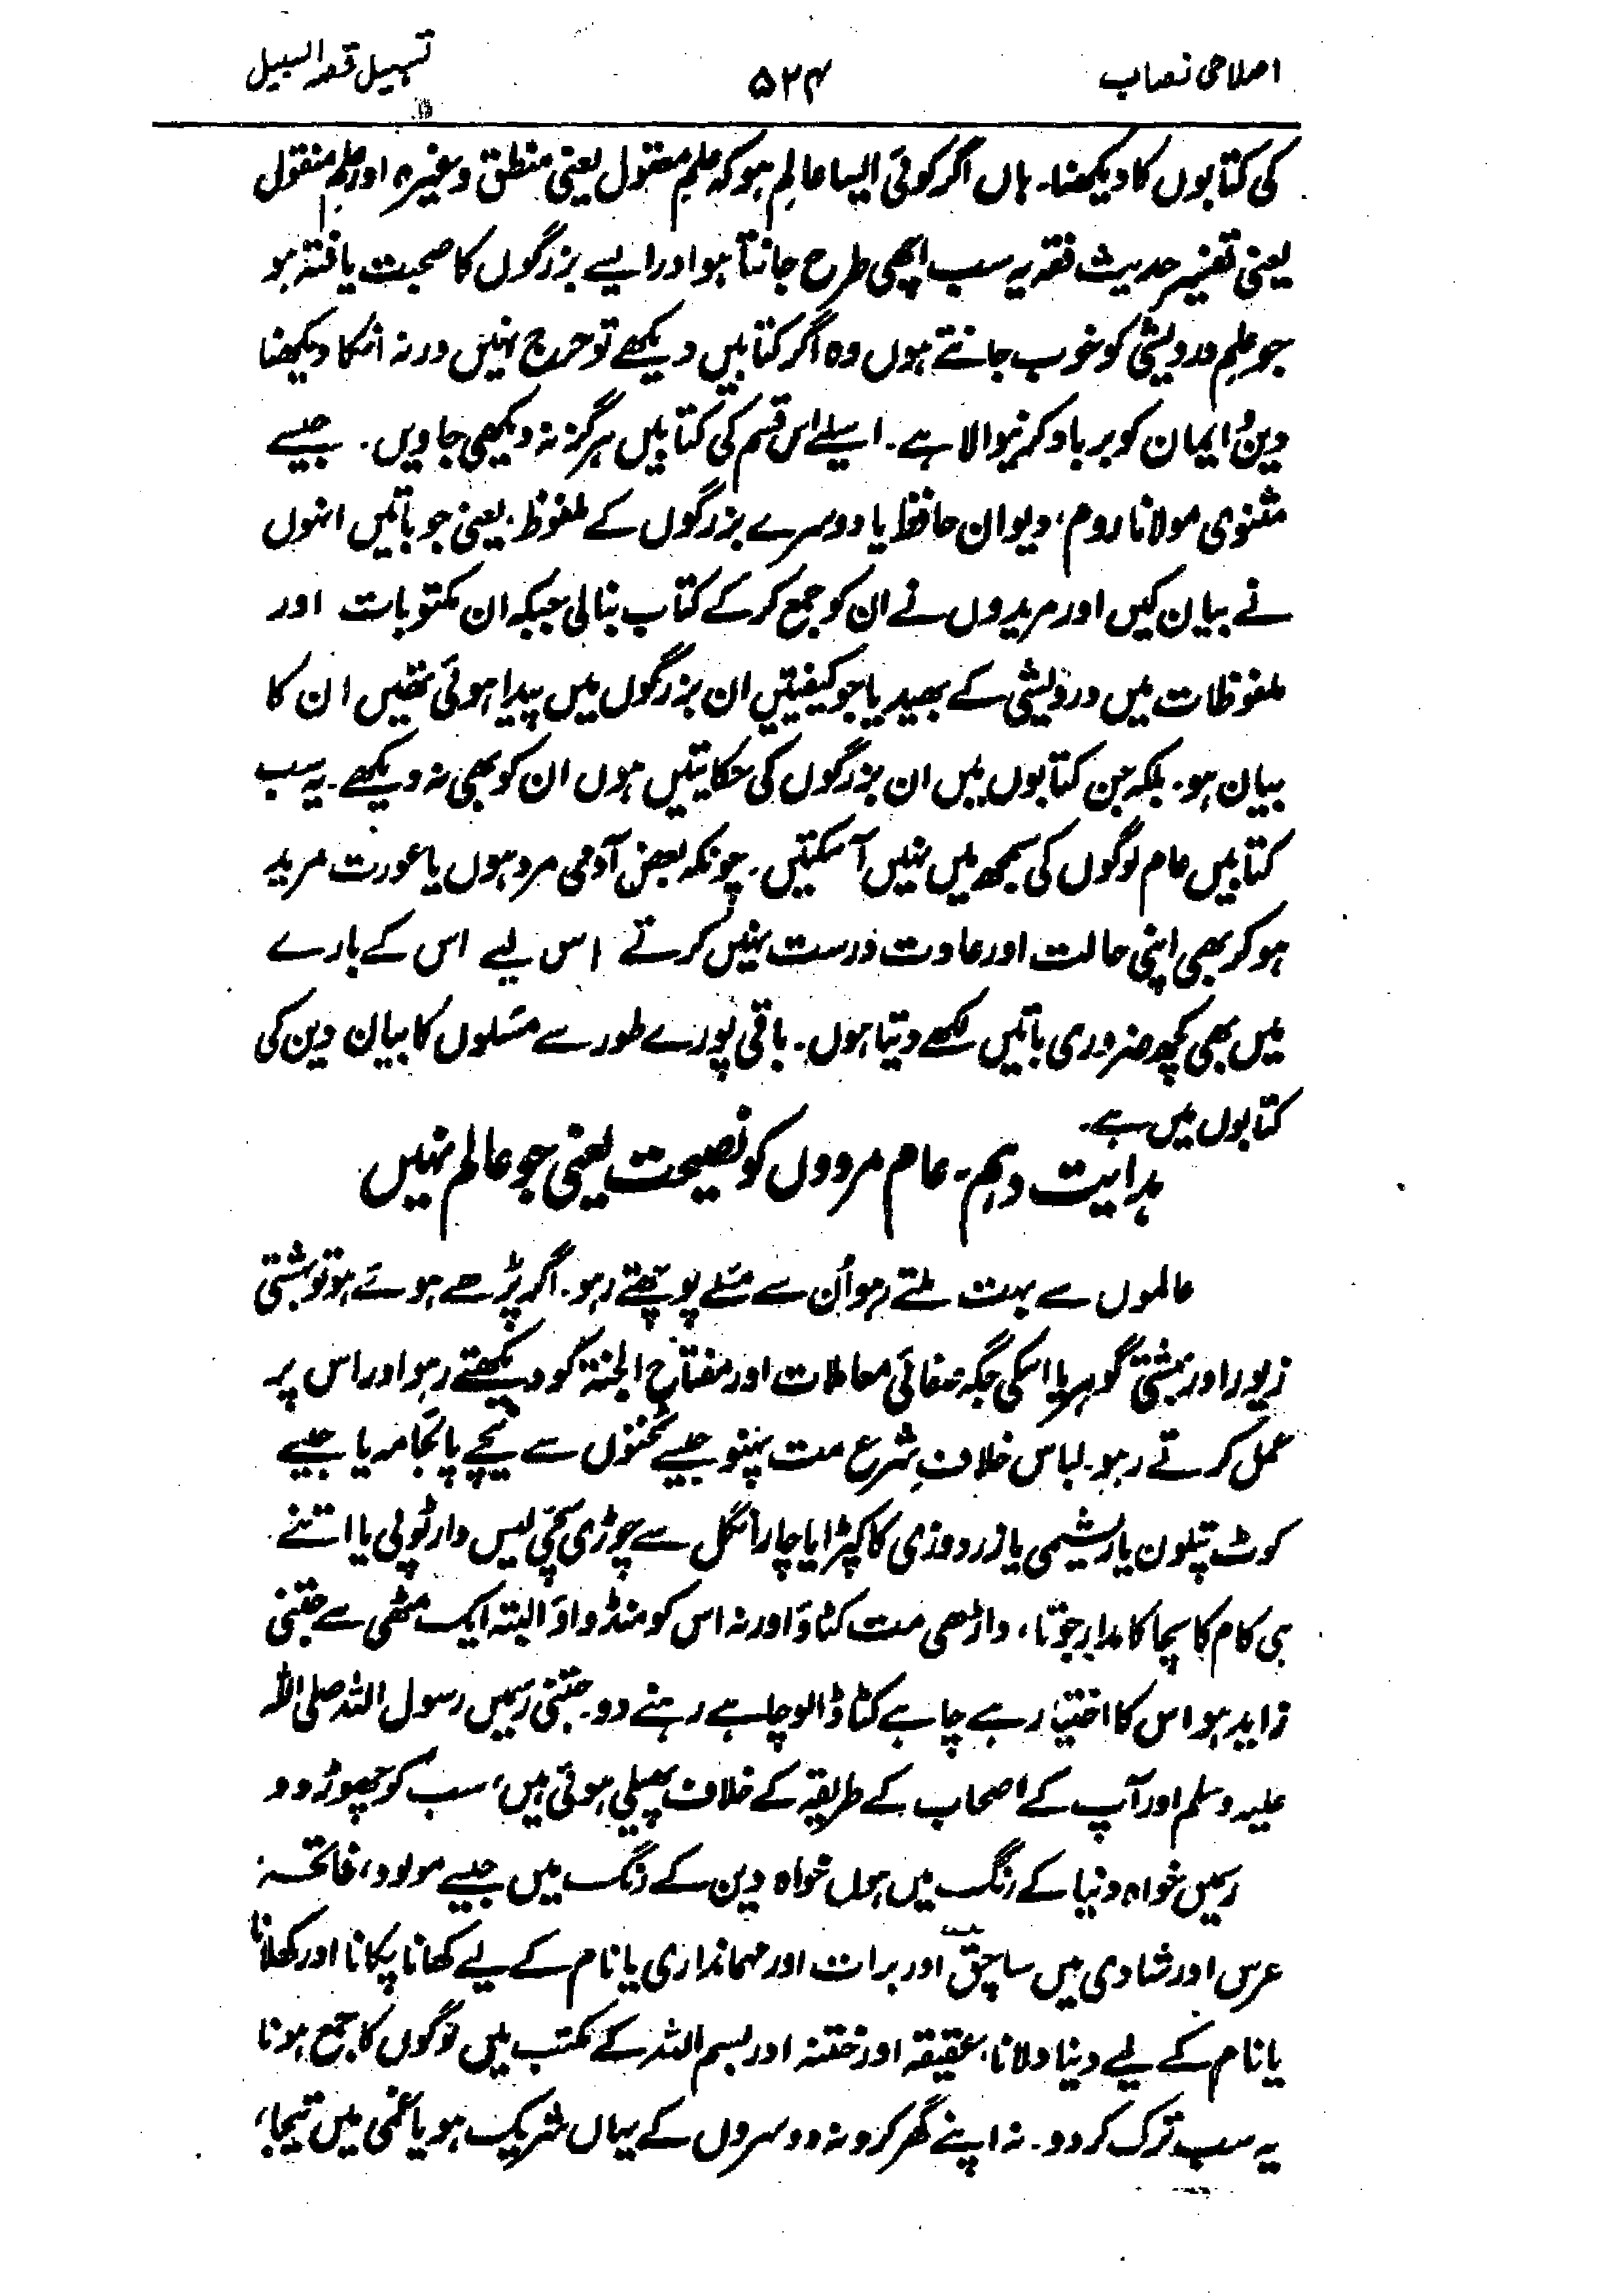 اصلاحی نصاب
۵۲۴
تسہیل قصد السبیل
کی کتابوں کا دیکھنا۔ ہاں اگر کوئی ایسا عالِم ہو کہ علمِ معقول یعنی منطق وغیرہ اور علمِ منقول
یعنی تفسیر حدیث فقہ یہ سب اچھی طرح جانتا ہو اور ایسے بزرگوں کا صحبت یافتہ ہو
جو علمِ درویشی کو خوب جانتے ہوں وہ اگر کتابیں دیکھے تو حرج نہیں ورنہ انکا دیکھنا
دین و ایمان کو برباد کرنیوالا ہے۔ اسیلے اس قسم کی کتابیں ہرگز نہ دیکھی جاویں۔ جیسے
مثنوی مولانا روم، دیوان حافظ یا دوسرے بزرگوں کے ملفوظ۔ یعنی جو باتیں انہوں
نے بیان کیں اور مریدوں نے ان کو جمع کر کے کتاب بنالی جبکہ ان مکتوبات اور
ملفوظات میں درویشی کے بھید یا جو کیفیتیں ان بزرگوں میں پیدا ہوئی تھیں ان کا
بیان ہو۔ بلکہ جن کتابوں میں ان بزرگوں کی حکایتیں ہوں ان کو بھی نہ دیکھے۔ یہ سب
کتابیں عام لوگوں کی سمجھ میں نہیں آسکتیں۔ چونکہ بعض آدمی مرد ہوں یا عورت مرید
ہو کر بھی اپنی حالت اور عادت درست نہیں کرتے اس لیے اس کے بارے
میں بھی کچھ ضروری باتیں لکھے دیتا ہوں۔ باقی پورے طور سے مسئلوں کا بیان دین کی
کتابوں میں ہے۔
ہدایت دہم۔ عام مردوں کو نصیحت یعنی جو عالم نہیں
عالموں سے بہت ملتے رہو اُن سے مسئلے پوچھتے رہو۔ اگر پڑھے ہوئے ہو تو بہشتی
زیور اور بہشتی گوہر یا اسکی جگہ صفائی معاملات اور مفتاح الجنۃ کو دیکھتے رہو اور اس پر
عمل کرتے رہو۔ لباس خلافِ شرع مت پہنو جیسے ٹخنوں سے نیچے پائجامہ یا جیسے
کوٹ پتلون یا ریشمی یا زردوزی کا کپڑا یا چار انگل سے چوڑی سچی لیس دار ٹوپی یا اتنے
ہی کام کا سچا کامدار جوتا، داڑھی مت کٹاؤ اور نہ اس کو منڈواؤ البتہ ایک مٹھی سے جتنی
زاید ہو اس کا اختیار ہے چاہے کٹا ڈالو چاہے رہنے دو۔ جتنی رسمیں رسول اللہ صلی اللہ
علیہ وسلم اور آپ کے اصحاب کے طریقہ کے خلاف پھیلی ہوئی ہیں، سب کو چھوڑ دو
رسمیں خواہ دنیا کے رنگ میں ہوں خواہ دین کے رنگ میں جیسے مولود، فاتحہ
عرس اور شادی میں ساچق اور برات اور مہمانداری یا نام کے لیے کھانا پکانا اور کھلانا
یا نام کے لیے دینا دلانا، عقیقہ اور ختنہ اور بسم اللہ کے مکتب میں لوگوں کا جمع ہونا
یہ سب ترک کر دو۔ نہ اپنے گھر کرو نہ دوسروں کے یہاں شریک ہو یا غمی میں تیجا،